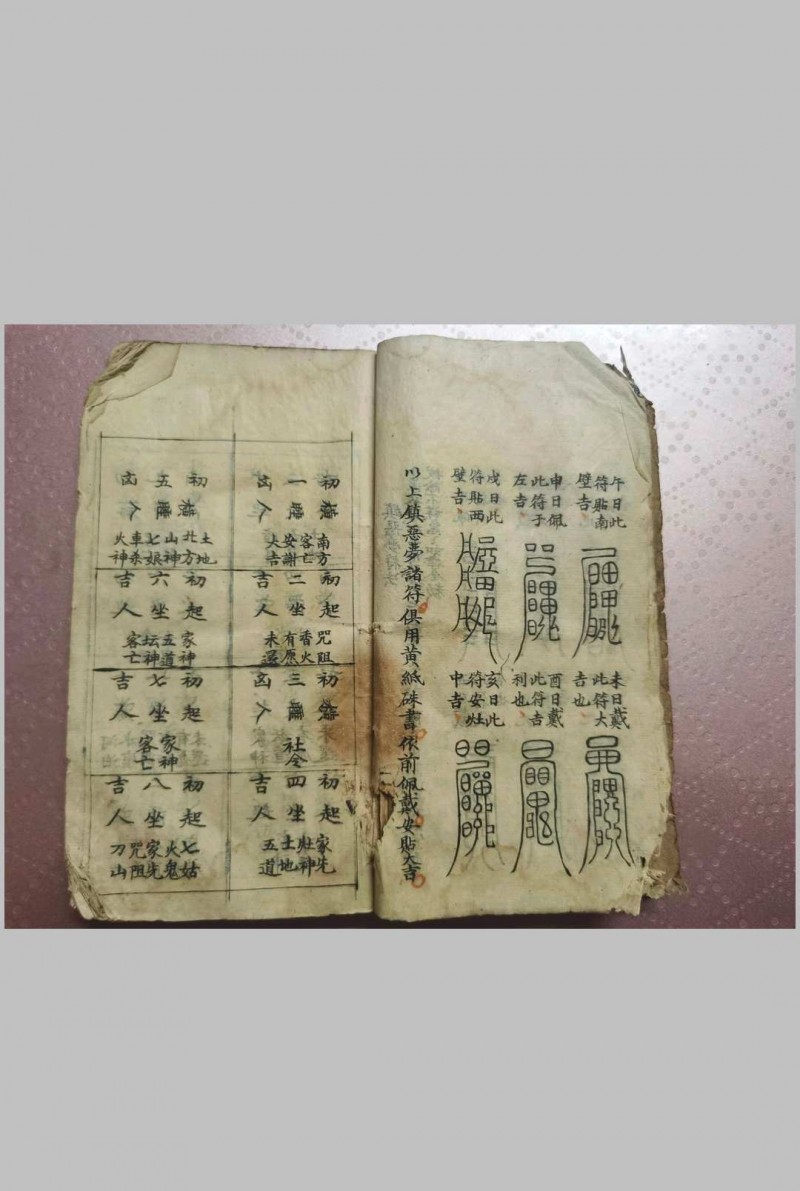 午日此
符貼南
壁吉
申日佩
此符于
左吉
戌日此
符貼西
壁吉
未日戴
此符大
吉也
酉日戴
此符吉
利也
亥日此
符安灶
中吉
以上鎮惡夢諸符俱用黃紙硃書依前佩戴安貼大吉
初
一
凶人
南方
客亡
安謝
大吉
初起
二坐
吉人
咒阻
香火
有原
未還
初
三
凶人
社令
初起
四坐
吉人
家先
灶神
土地
五道
初
五
凶人
土地
北方
山神
七娘
車杀
火神
初起
六坐
吉人
家神
五道
坛神
客亡
初起
七坐
吉人
家神
客亡
初起
八坐
吉人
七姑
火鬼
家先
咒阻
刀山